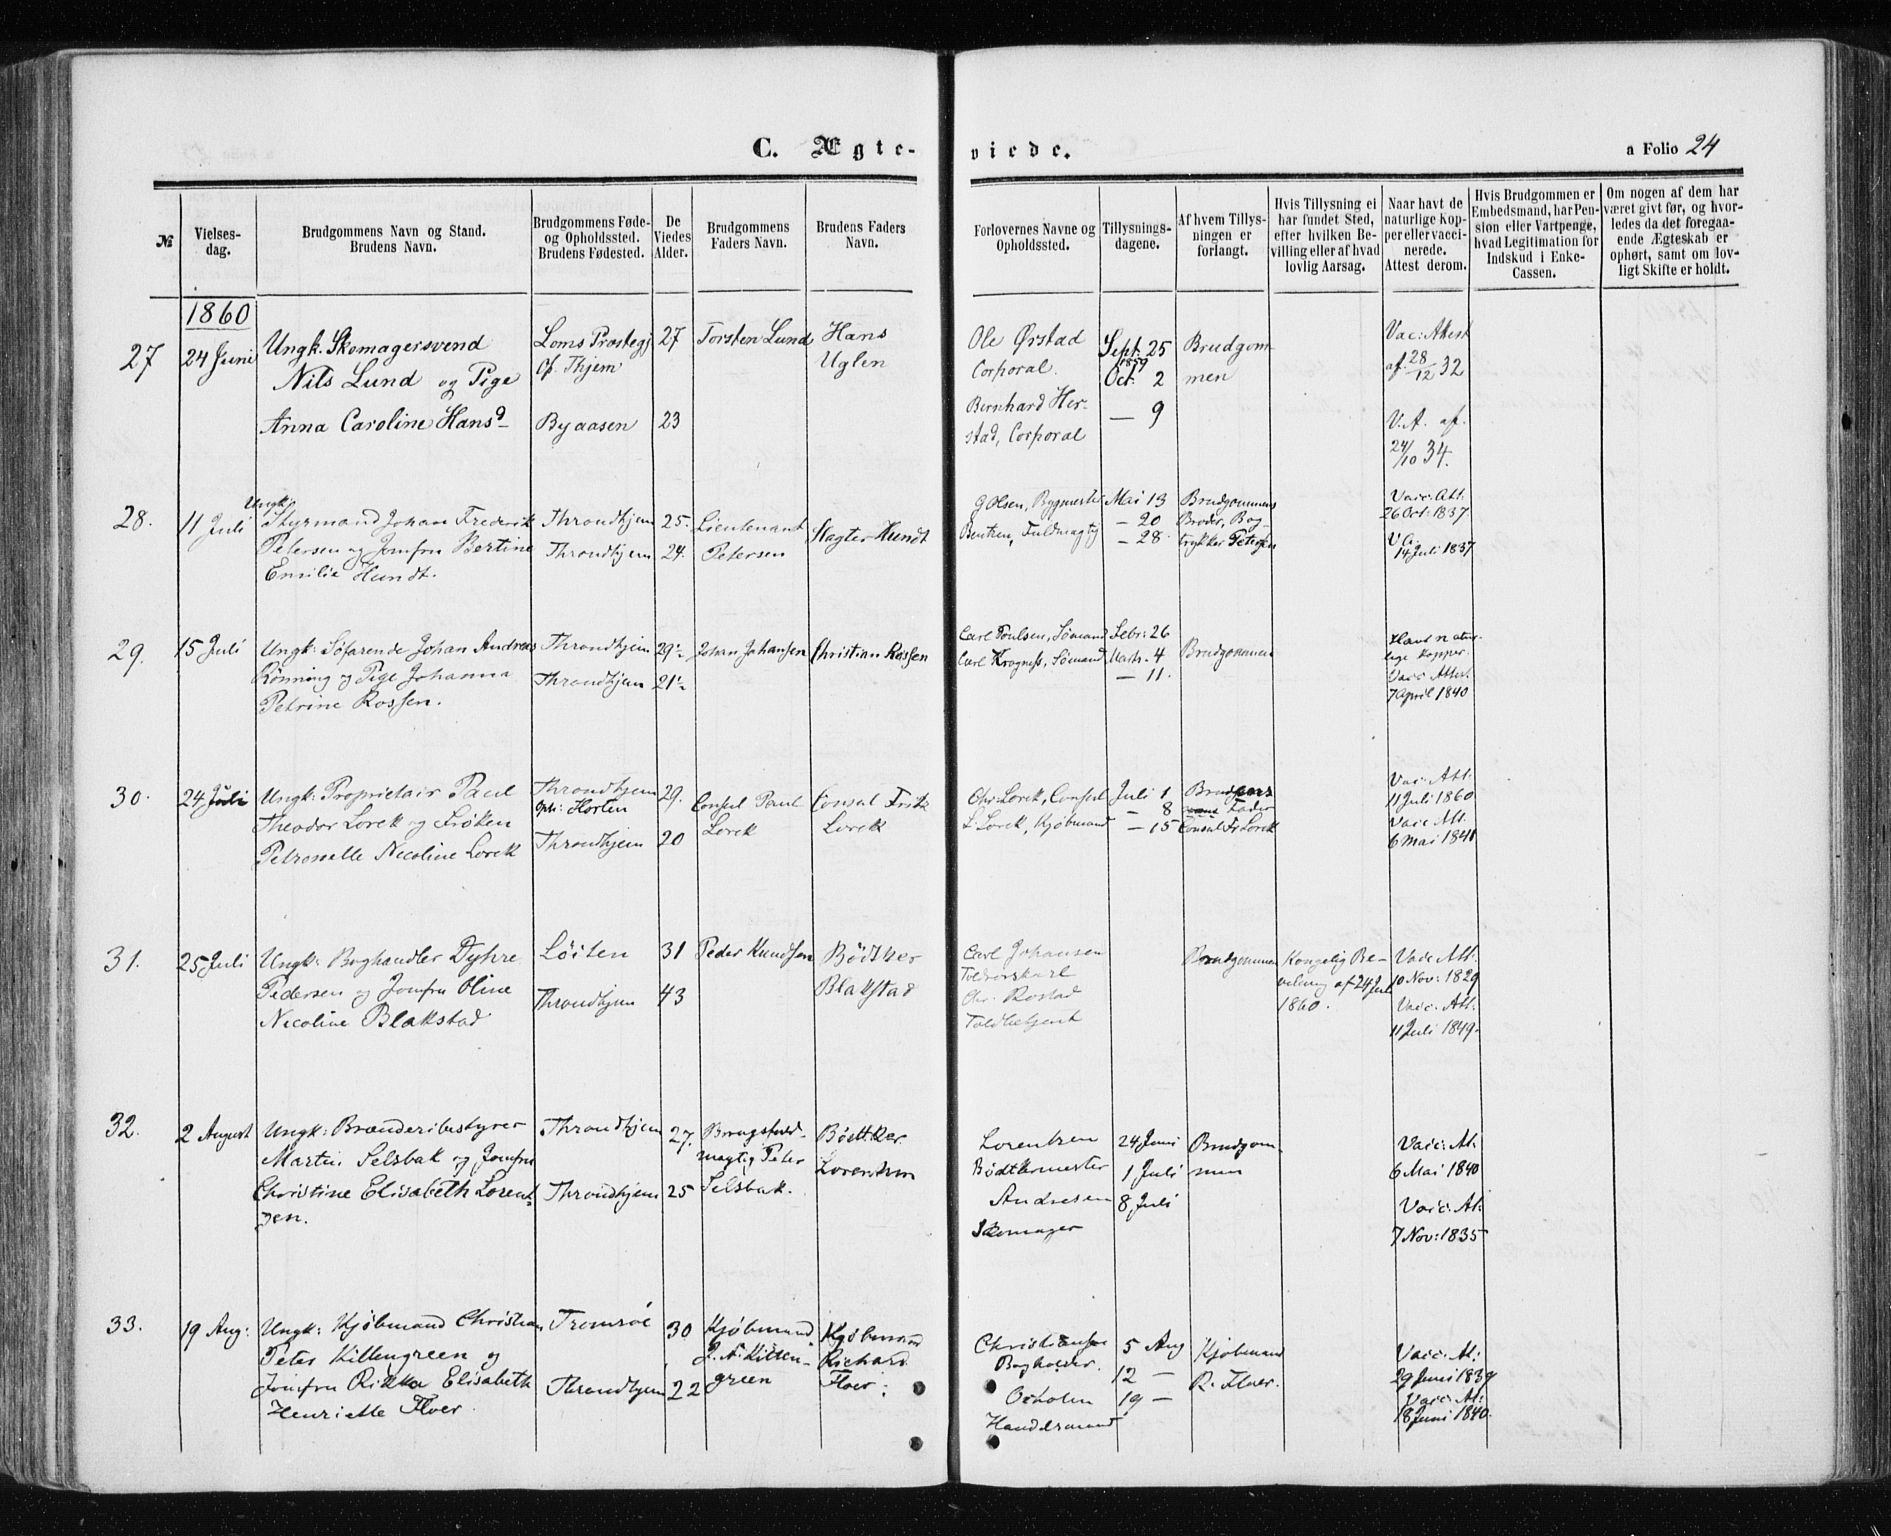 C. Ægte-viede.
a Folio 24
№
Vielses-
dag.
Brudgommens Navn og Stand.
Brudens Navn.
Brudgommens Føde-
og Opholdssted.
Brudens Fødested.
De
Viedes
Alder.
Brudgommens
Faders Navn.
Brudens Faders
Navn.
Forlovernes Navne og
Opholdssted.
Tillysnings-
dagene.
Af hvem Tillys-
ningen er
forlangt.
Hvis Tillysning ei
har fundet Sted,
efter hvilken Be-
villing eller af hvad
lovlig Aarsag.
Naar havt de
naturlige Kop-
per eller vacci-
nerede.
Attest derom.
Hvis Brudgommen er
Embedsmand, har Pen-
sion eller Vartpenge,
hvad Legitimation for
Indskud i Enke-
Cassen.
Om nogen af dem har
været givt før, og hvor-
ledes da det foregaa-
ende Ægteskab er
ophørt, samt om lov-
ligt Skifte er holdt.
1860
27
24 Juni
Ungk. Skomagersvend
Nils Lund og Pige
Anna Caroline Hansd
Loms Præstegj
Of. Thjem
Byaasen
27
23
Torsten Lund
Hans
Uglen
Ole Ørstad
Corporal.
Bernhard Her-
stad, Corporal
Sept. 25
1859
Oct. 2
— 9
Brudgom-
men
Vac: Attest
af 28/12 32
V. A. af
24/10 34.
28.
11 Juli
Ungk.
Styrmand Johan Frederik
Petersen og Jomfru Bertine
Emilie Hundt.
Throndhjem
Throndhjem
25.
24.
Lieutenant
Petersen
Slagter Hundt
G Olsen, Bygmester
Bentzen, Fuldmægtig
Mai 13
— 20
— 28.
Brudgommens
Broder, Bog-
trykker Petersen
Vacc. Att.
26 Oct: 1837
V. A.
14 Juli 1837
29.
15 Juli
Ungk: Söfarende Johan Andreas
Rönning og Pige Johanna
Petrine Rossen.
Throndhjem
Throndhjem
29½
21½
Johan Johansen
Christian Rossen
Carl Poulsen, Sømand
Carl Kragness, Sømand
Febr: 26
Marts 4
— 11.
Brudgommen
Havt natur-
lige Kopper.
Vacc Attest.
7 April 1840
30.
24 Juli
Ungk: Proprietair Paul
Theodor Lorck og Frøken
Petronelle Nicoline Lorck
Throndhjem
oph: Horten
Throndhjem
29.
20
Consul Paul
Lorck
Consul Fritz
Lorck
Chr: Lorck, Consul
L. Lorck, Kjøbmand
Juli 1
— 8
— 15
Brudens
Fader
Consul Fr Lorck
Vac: Att.
11 Juli 1860
Vacc Att.
6 Mai 1841
31.
25 Juli
Ungk: Boghandler Dyhre
Pedersen og Jomfru Oline
Nicoline Blakstad
Löiten
Throndhjem
31
43
Peder Knudsen
Bødtker
Blakstad
Carl Johansen
Toldrorskarl
Chr. Rostad
Toldbetjent
Brudgommen
Kongelig Be-
vilning af 24 Juli
1860.
Vacc Att.
10 Nov: 1829
Vacc. Att:
11 Juli 1849.
32.
2 August
Ungk: Brænderibestyrer
Martin Selsbak og Jomfru
Christine Elisabeth Lorent-
zen.
Throndhjem
Throndhjem
27.
25
Brugsfuld-
mægtig Peter
Selsbak.
Bødtker
Lorentzen
Lorentzen
Bødtkermester
Andresen
Skomager
24 Juni
1 Juli
8 Juli
Brudgom-
men
Vacc: At.
6 Mai 1840
Vacc. At.
7 Nov: 1835
33.
19 Aug:
Ungk: Kjøbmand Christian
Peter Killengreen og
Jomfru Rikka Elisabeth
Henriette Floer.
Tromsøe
Throndhjem
30
22
Kjøbmand
J. A. Killen-
green
Kjøbmand
Richard
Floer.
Christiansen
Bogholder.
Oxholm
Handelsmand
5 Aug
12 —
19 —
Kjøbmand
R. Floer.
Vacc. At:
29 Juni 1839
Vacc. At:
18 Juni 1840.